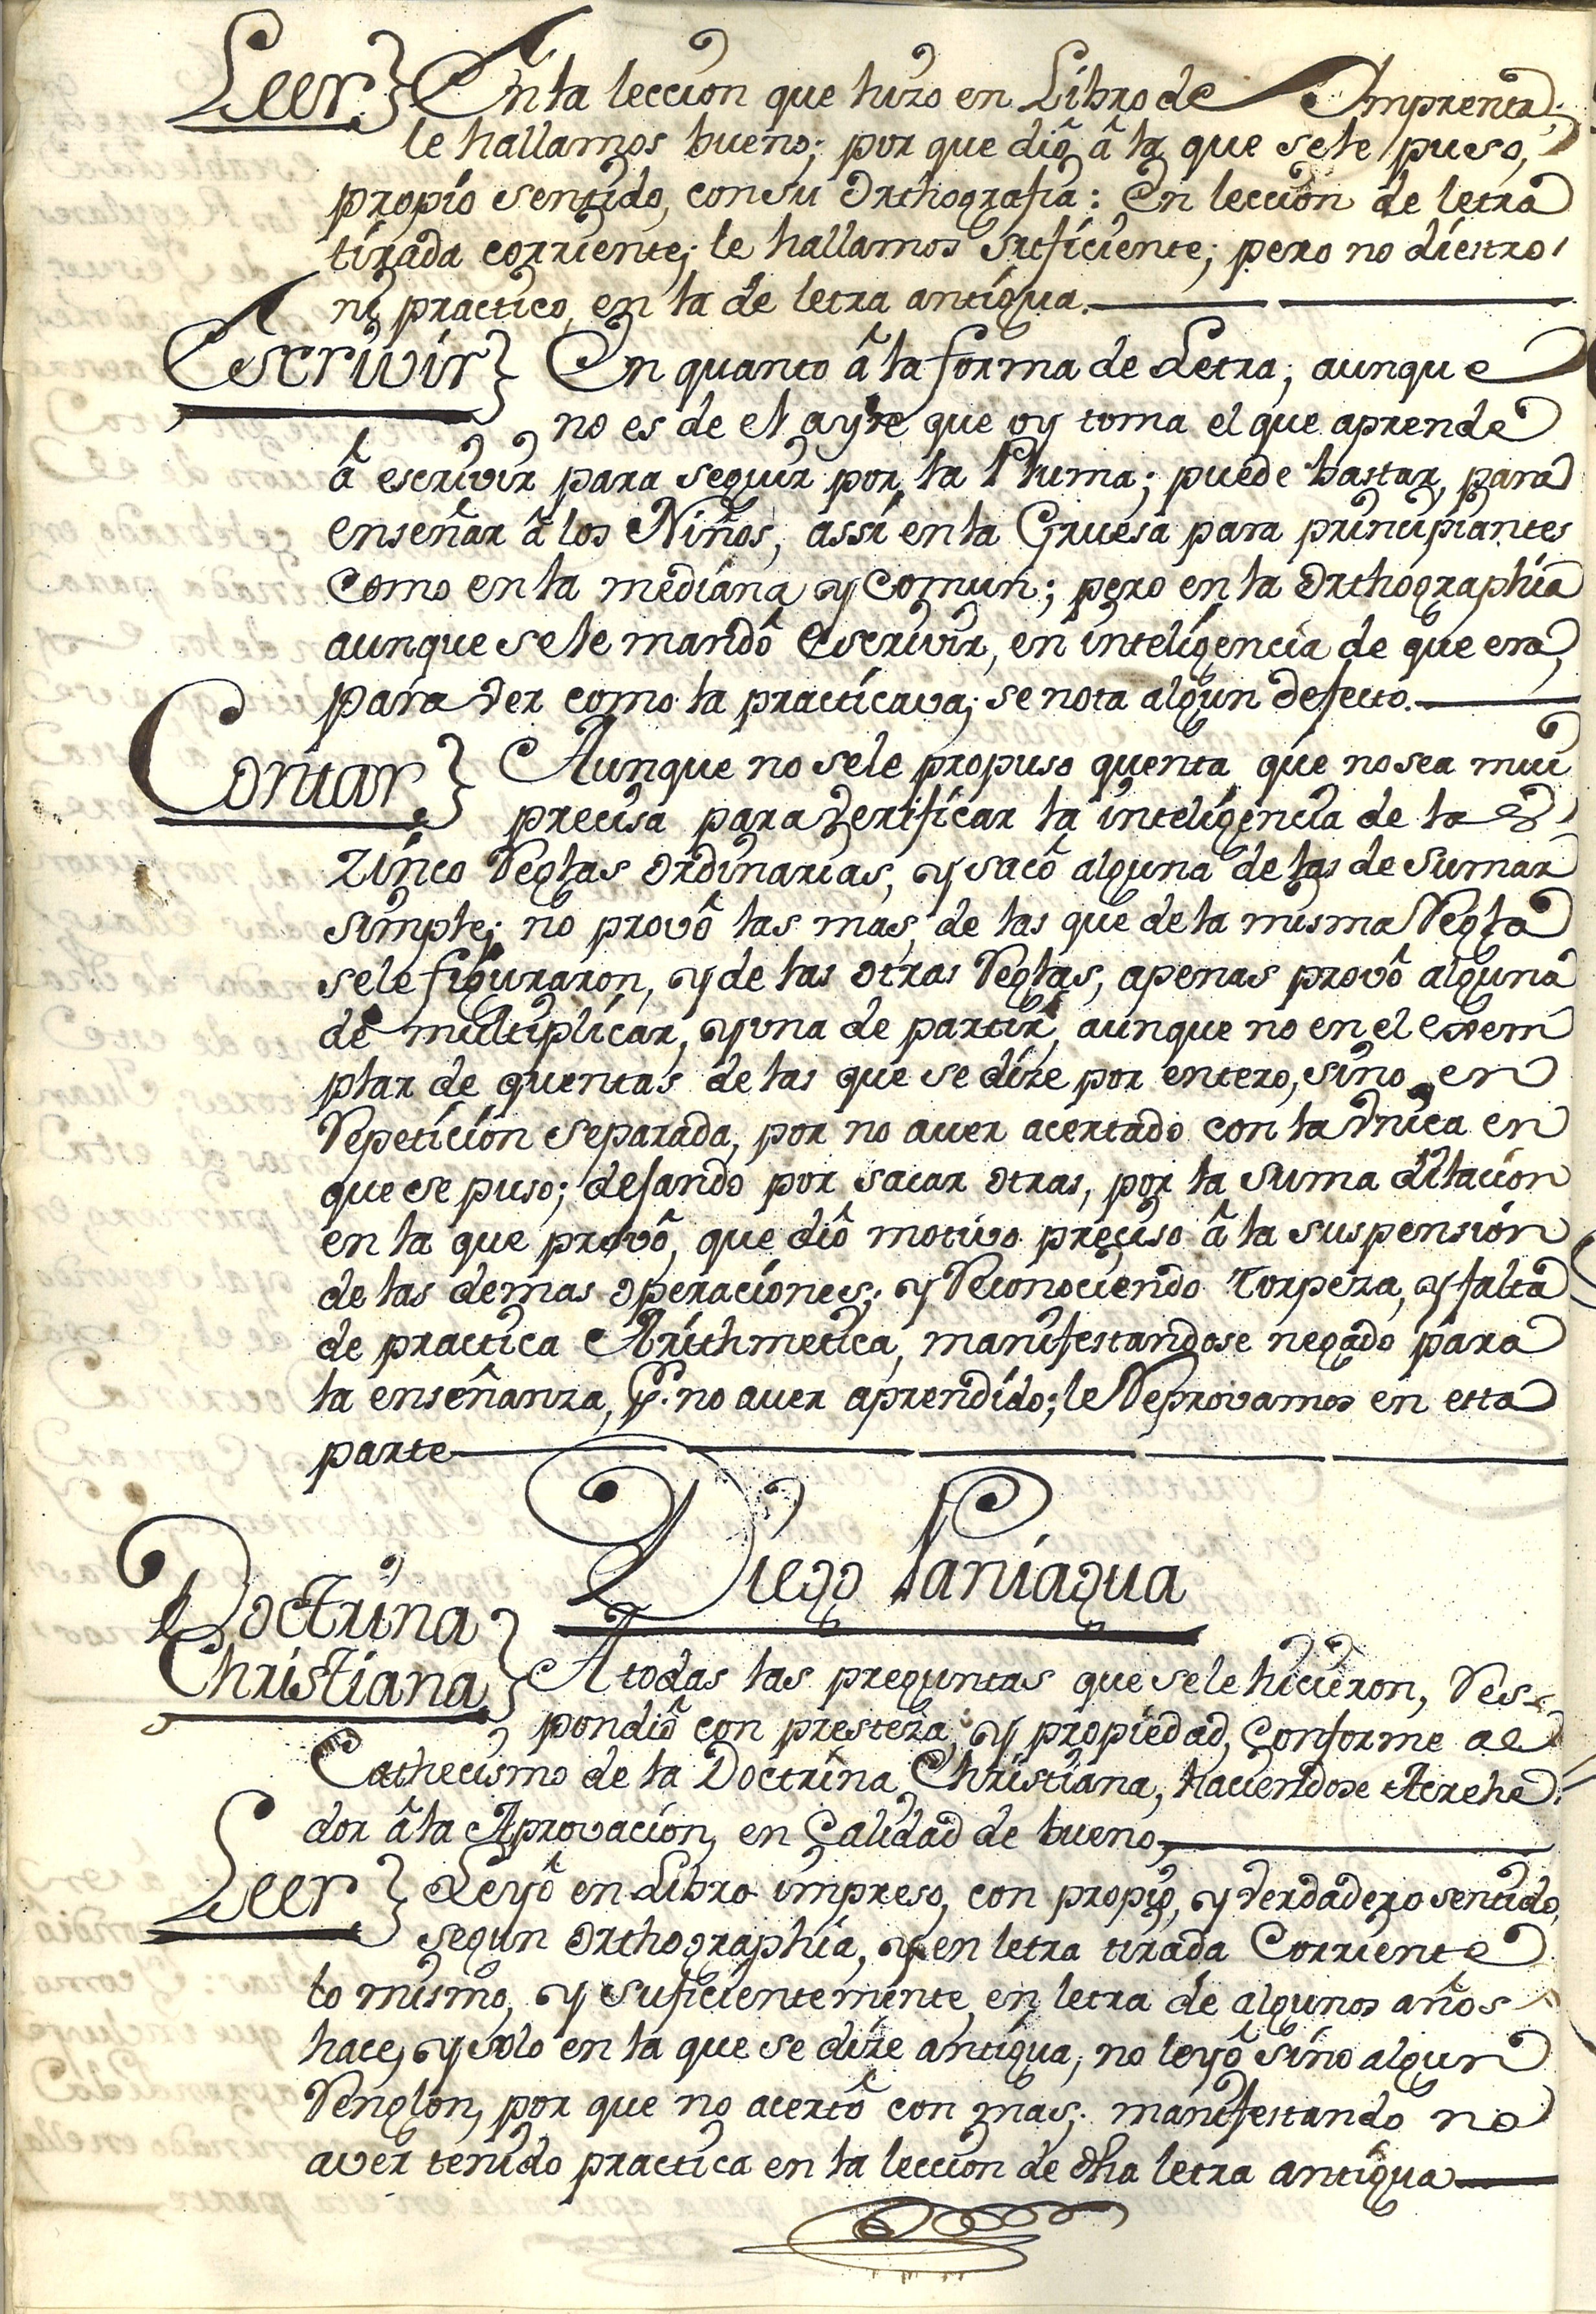 Leer} En la leccion que hizo en Libro de Imprenta,
le hallamos bueno; por que diô â la que se le puso,
propio sentido, con su Orthografia: En leccion de letra
tirada corriente; le hallamos suficiente; pero no diestro,
ni practico, en la de letra antigua.
Escrivir} En quanto â la forma de Letra; aunque
no es de el ayre que oy toma el que aprende
â escrivir para seguir por la Pluma; puede bastar, para
enseñar â los Niños, assi en la Gruesa para principiantes
como en la mediana y Comun; pero en la Orthographia
aunque se le mandô escrivir, en inteligencia de que era,
para ver como la practicava; se nota algun defecto.
Contar} Aunque no se le propuso quenta que no sea mui
precisa para verificar la inteligencia de la s
zinco Reglas Ordinarias, y sacô alguna de las de Sumar
simple; no provô las mas, de las que de la misma Regla
se le figuraron, y de las otras Reglas, apenas provô alguna
de multiplicar, y vna de partir, aunque no en el exem
plar de quentas de las que se dize por entero, sino en
Repeticion separada, por no auer acertado con la vnica en
que se puso; dejando por sacar otras, por la suma dilacion
en la que provô, que diô motivo preciso â la suspension
de las demas operaciones; y Reconociendo torpeza, y falta
de practica Arithmetica, manifestandose negado para
la enseñanza, P.r no auer aprendido; le Reprovamos en esta
parte
Diego Paniagua
Doctrina
Christiana} A todas las preguntas que se le hicieron, Res-
pondiô con presteza, y propiedad, Conforme al
Cathecismo de la Doctrina Christiana, haciendose Acrehe
dor â la Aprovacion, en Calidad de bueno,
Leer} Leyô en Libro impreso, con propio, y verdadero sentido,
segun Orthographia, y en letra tirada Corriente
lo mismo, y suficientemente, en letra de algunos años
hace, y solo en la que se dize antigua, no leyô sino algun
Renglon, por que no acertô con mas; manifestando no
aver tenido practica en la leccion de dha letra antigua